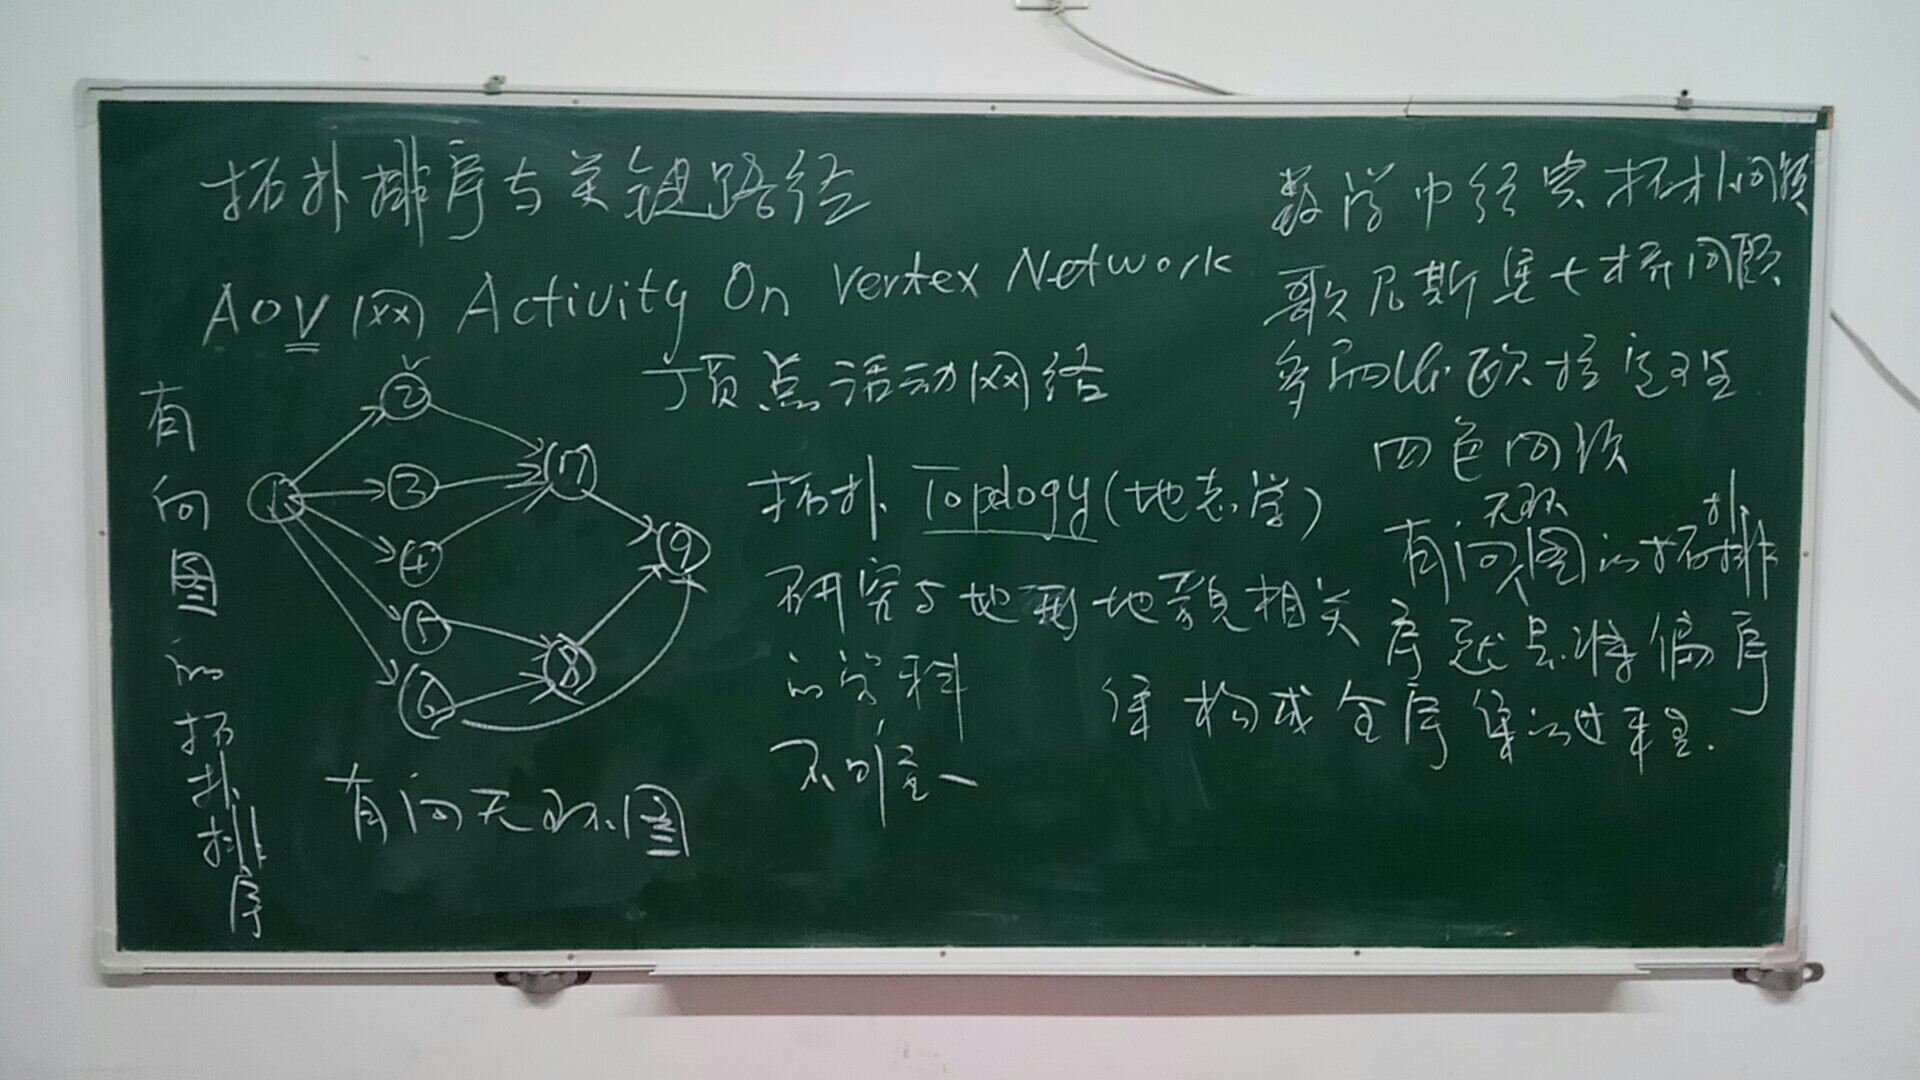 拓扑排序与关键路径
AOV网 Activity On Vertex Network
顶点活动网络
有向图的拓扑排序
1
2
3
4
5
6
7
8
9
有向无环图
拓扑 Topology(地志学)
研究与地形地貌相关
的学科
不可
数学中经典拓扑问题
哥尼斯堡七桥问题
多面体欧拉定理
四色问题
有向无环图的拓扑排
序就是将偏序
集构成全序集的过程.